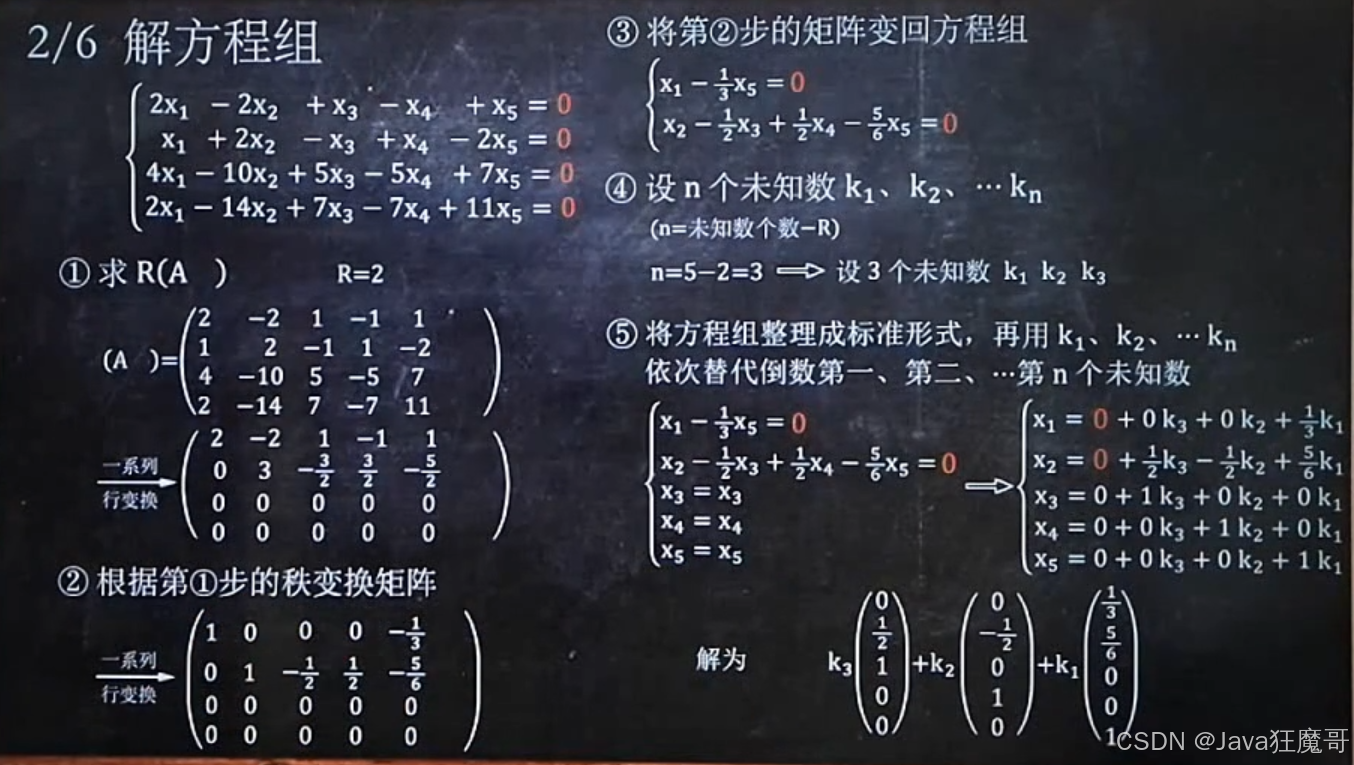 2/6 解方程组
2x₁ − 2x₂ + x₃ − x₄ + x₅ = 0
x₁ + 2x₂ − x₃ + x₄ − 2x₅ = 0
4x₁ − 10x₂ + 5x₃ − 5x₄ + 7x₅ = 0
2x₁ − 14x₂ + 7x₃ − 7x₄ + 11x₅ = 0
① 求 R(A ) R=2
(A )=
2 −2 1 −1 1
1 2 −1 1 −2
4 −10 5 −5 7
2 −14 7 −7 11
一系列
行变换
2 −2 1 −1 1
0 3 −3/2 3/2 −5/2
0 0 0 0 0
0 0 0 0 0
② 根据第①步的秩变换矩阵
一系列
行变换
1 0 0 0 −1/3
0 1 −1/2 1/2 −5/6
0 0 0 0 0
0 0 0 0 0
③ 将第②步的矩阵变回方程组
x₁ − 1/3x₅ = 0
x₂ − 1/2x₃ + 1/2x₄ − 5/6x₅ = 0
④ 设 n 个未知数 k₁、k₂、⋯kₙ
(n=未知数个数−R)
n=5−2=3 ⟹ 设 3 个未知数 k₁ k₂ k₃
⑤ 将方程组整理成标准形式，再用 k₁、k₂、⋯kₙ
依次替代倒数第一、第二、⋯第 n 个未知数
x₁ − 1/3x₅ = 0
x₂ − 1/2x₃ + 1/2x₄ − 5/6x₅ = 0
x₃ = x₃
x₄ = x₄
x₅ = x₅
⟹
x₁ = 0 + 0k₃ + 0k₂ + 1/3k₁
x₂ = 0 + 1/2k₃ − 1/2k₂ + 5/6k₁
x₃ = 0 + 1k₃ + 0k₂ + 0k₁
x₄ = 0 + 0k₃ + 1k₂ + 0k₁
x₅ = 0 + 0k₃ + 0k₂ + 1k₁
解为 k₃(0 1/2 1 0 0)+k₂(0 −1/2 0 1 0)+k₁(1/3 5/6 0 0 1)
CSDN @Java狂魔哥